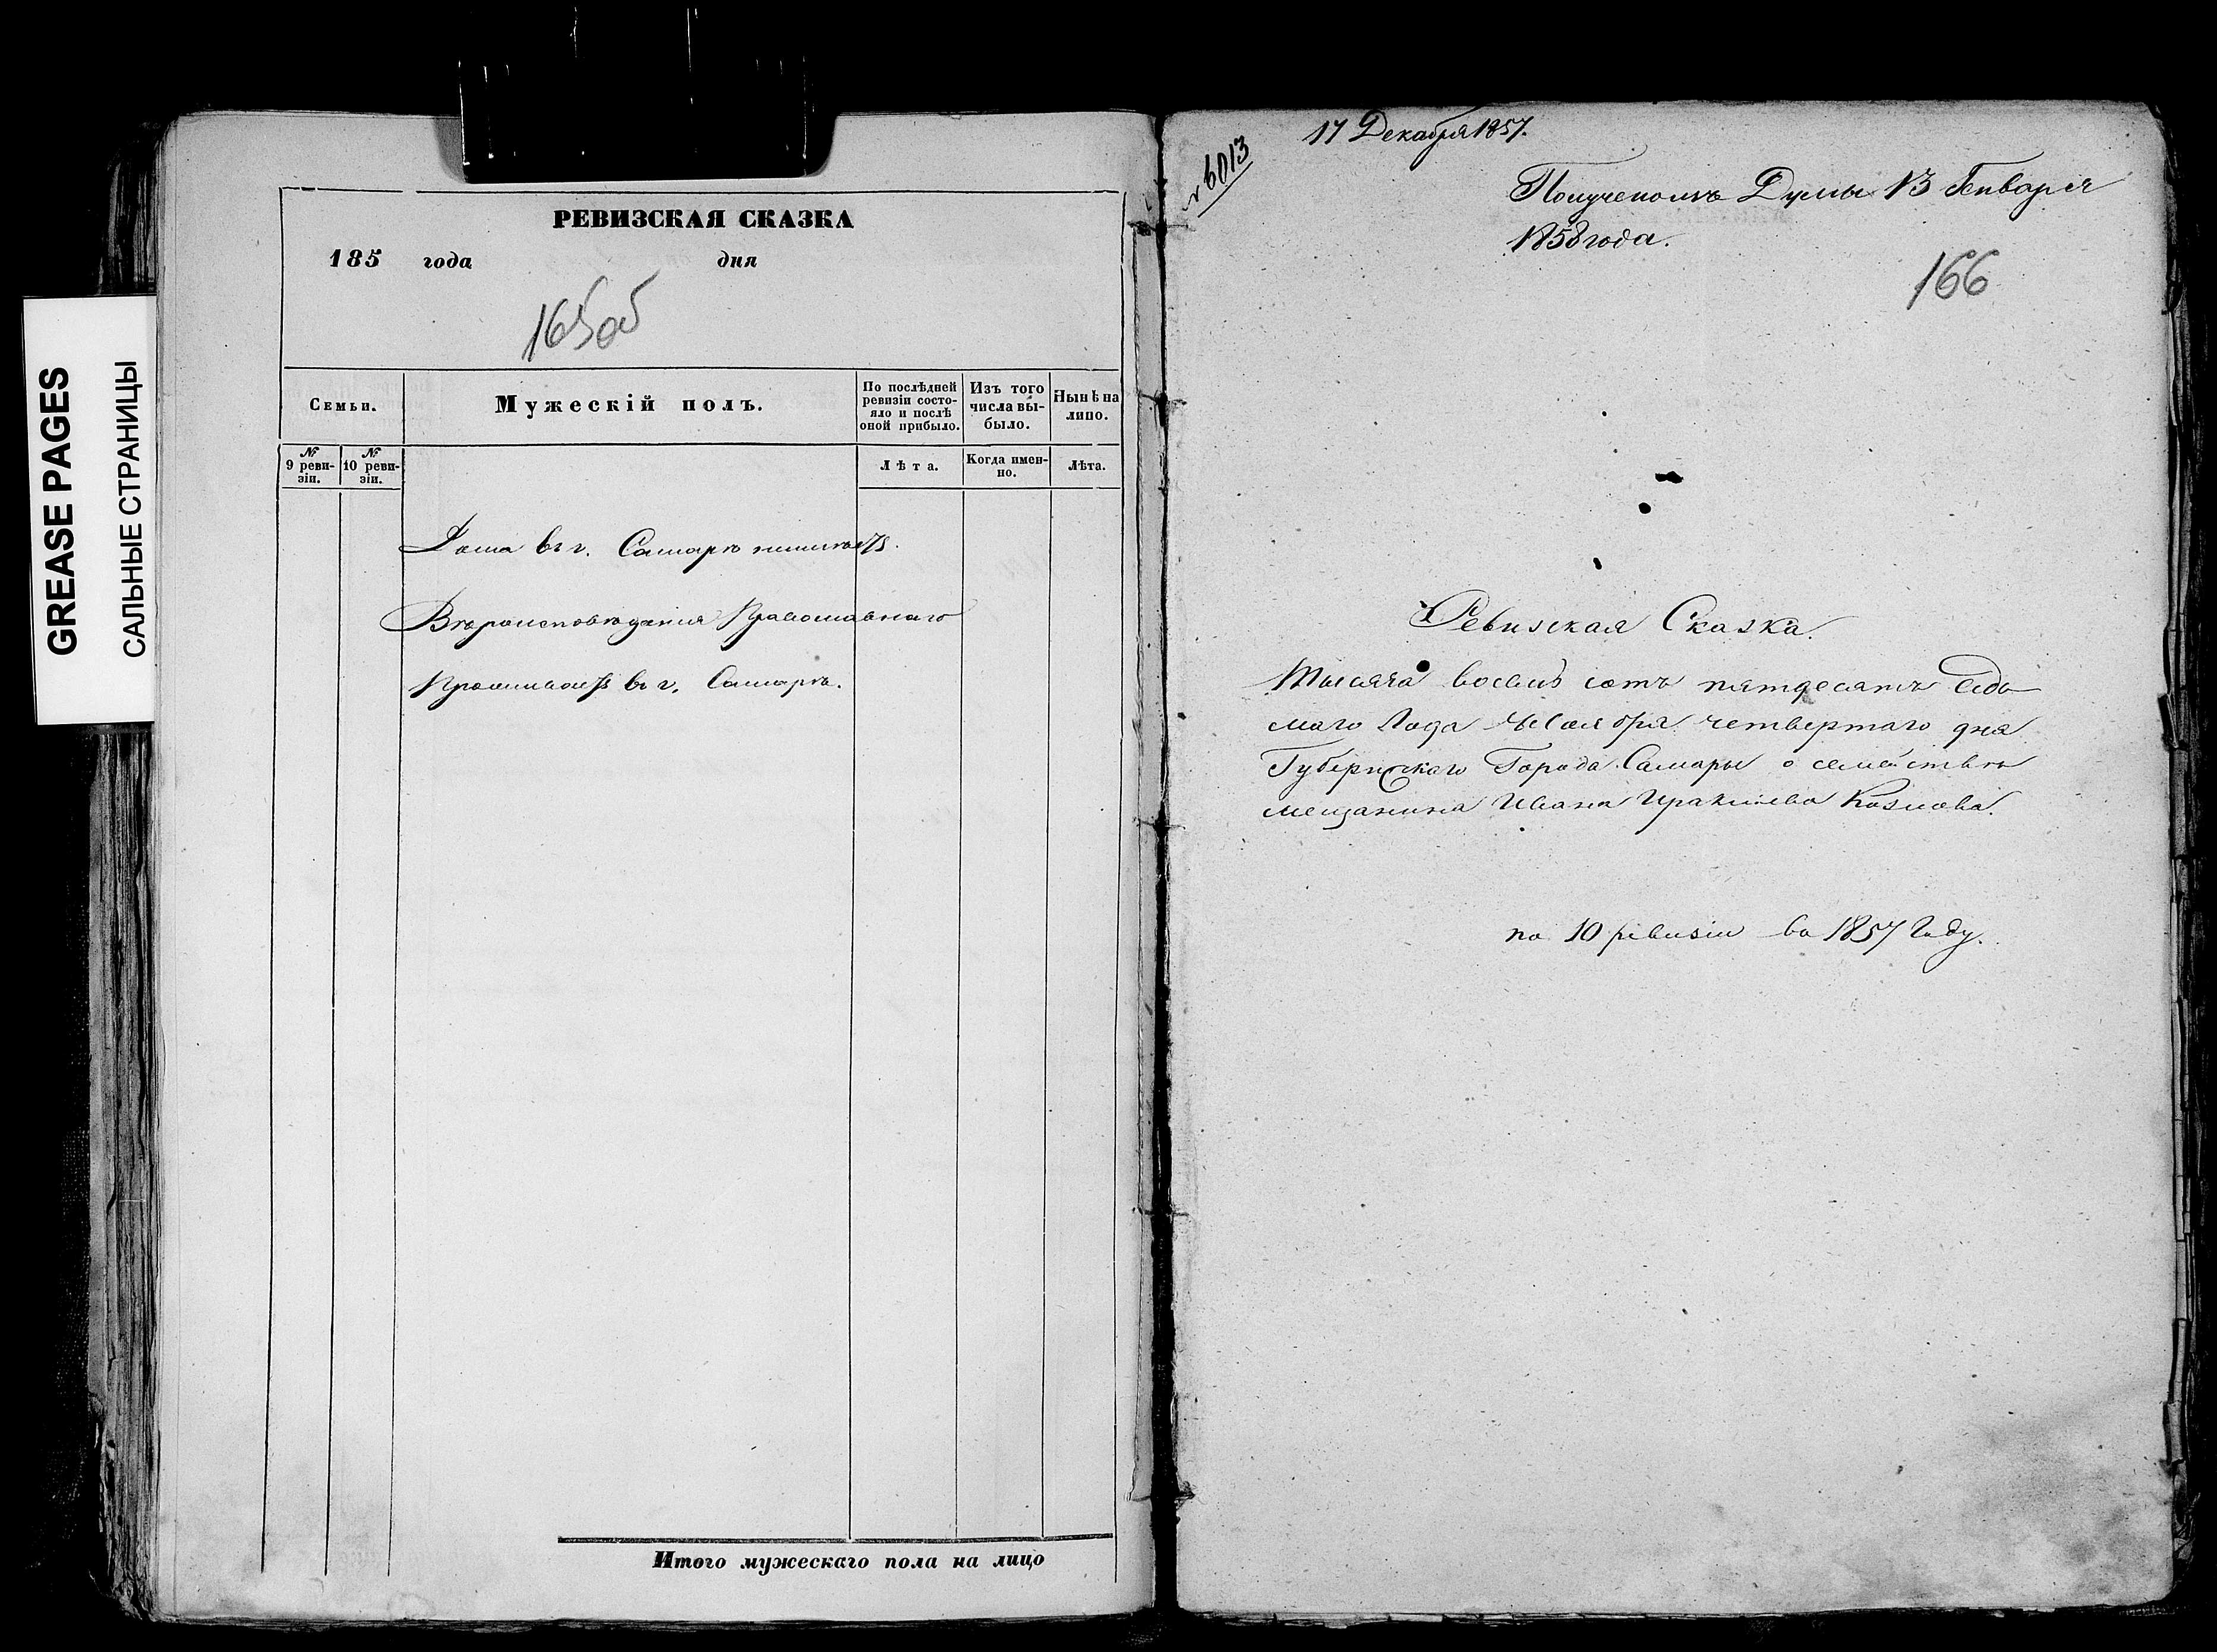 GREASE PAGES
САЛЬНЫЕ СТРАНИЦЫ
РЕВИЗСКАЯ СКАЗКА
185 года дня
165об
Семьи.
Мужескій полъ.
По послѣдней ревизіи состояло и послѣ оной прибыло.
Изъ того числа выбыло.
Нынѣ на лицо.
№ 9 ревизіи.
№ 10 ревизіи.
Лѣта.
Когда именно.
Лѣта.
Дома въ г. Самарѣ
Вѣроисповѣданія Православнаго
въ г. Самарѣ.
Итого мужескаго пола на лицо
№ 6013
17 Декабря 1857.
Думы 13 Генваря
1858 года.
166
Ревизская Сказка.
Тысяча восемь сотъ пятдесятъ седь
маго Года Ноября четвертаго дня
Губернскаго Города Самары о семействѣ
мещанина Ивана Ираклиева Козлова.
по 10 ревизіи въ 1857 Году.